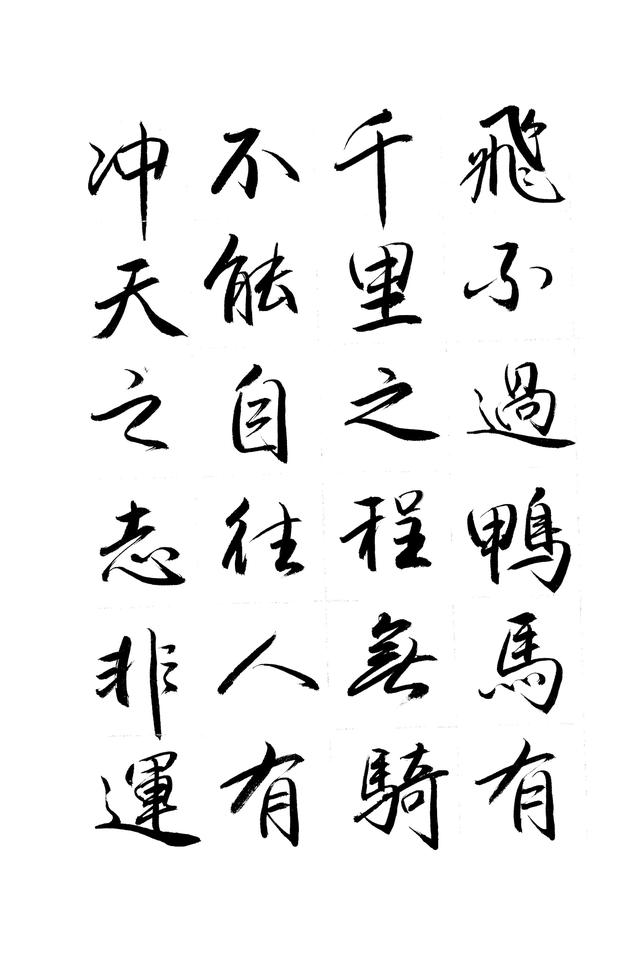 飛不過鴨馬有
千里之程無騎
不能自往人有
冲天之志非運